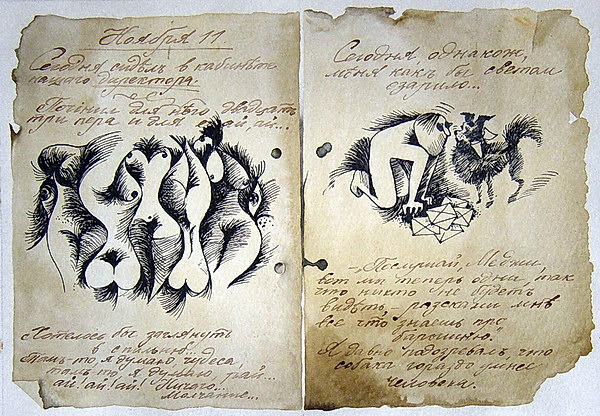 Ноября 11
Сегодня сидѣлъ в кабинѣте
нашего директора.
Починил для него двадцать
три пера и для ея ай, ай...
Хотелось бы заглянуть
в спальню...
тамъ то я думаю чудеса,
тамъ то я думаю, рай...
ай! ай! ай! Ничего...
Молчание...
Сегодня однакож,
меня какъ бы светом
озарило...
„Послушай, Меджи
вот мы теперь одни, так
что никто не будетъ
видѣть, разскажи мнѣ
все что знаешь про
барышню.
Я давно подозревалъ, что
собака гораздо умнее
человека.